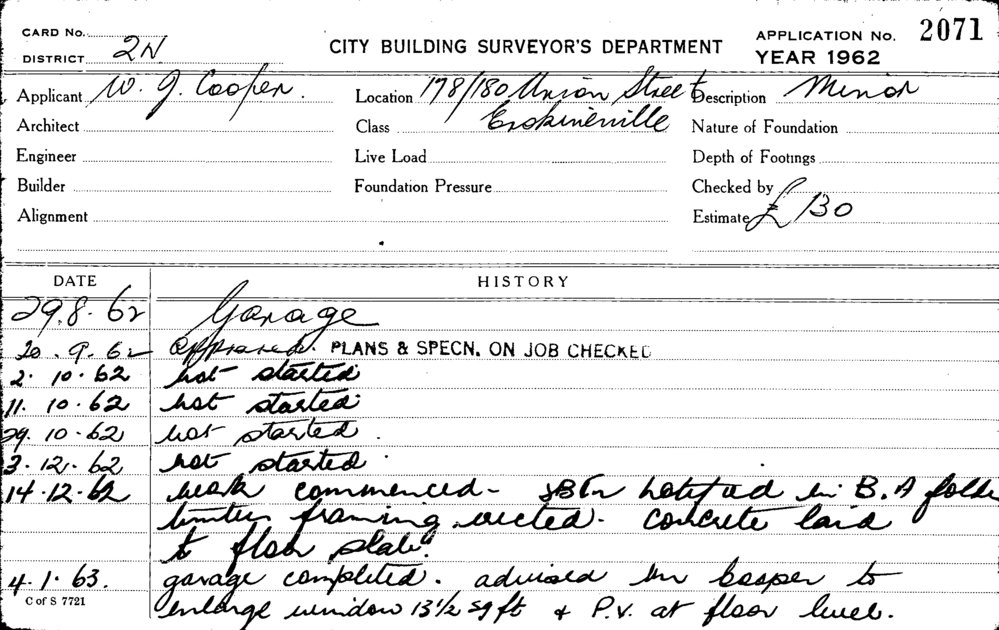 CARD No.
DISTRICT 2N
CITY BUILDING SURVEYOR'S DEPARTMENT
APPLICATION No. 2071
YEAR 1962
Applicant W. J. Cooper. Location 178/180 Union Street Description Minor
Architect Class Erskineville Nature of Foundation
Engineer Live Load Depth of Footings
Builder Foundation Pressure Checked by
Alignment Estimate £130
DATE HISTORY
29.8.62 Garage
20.9.62 Approved. PLANS & SPECN. ON JOB CHECKED
2.10.62 not started
11.10.62 not started
29.10.62 not started.
3.12.62 not started.
14.12.62 work commenced - notified in B.A folde
timber framing erected. concrete laid
to floor slab.
4.1.63. garage completed. advised Mr Cooper to
C of S 7721
enlarge window 13 1/2 sq ft & P.V. at floor level.